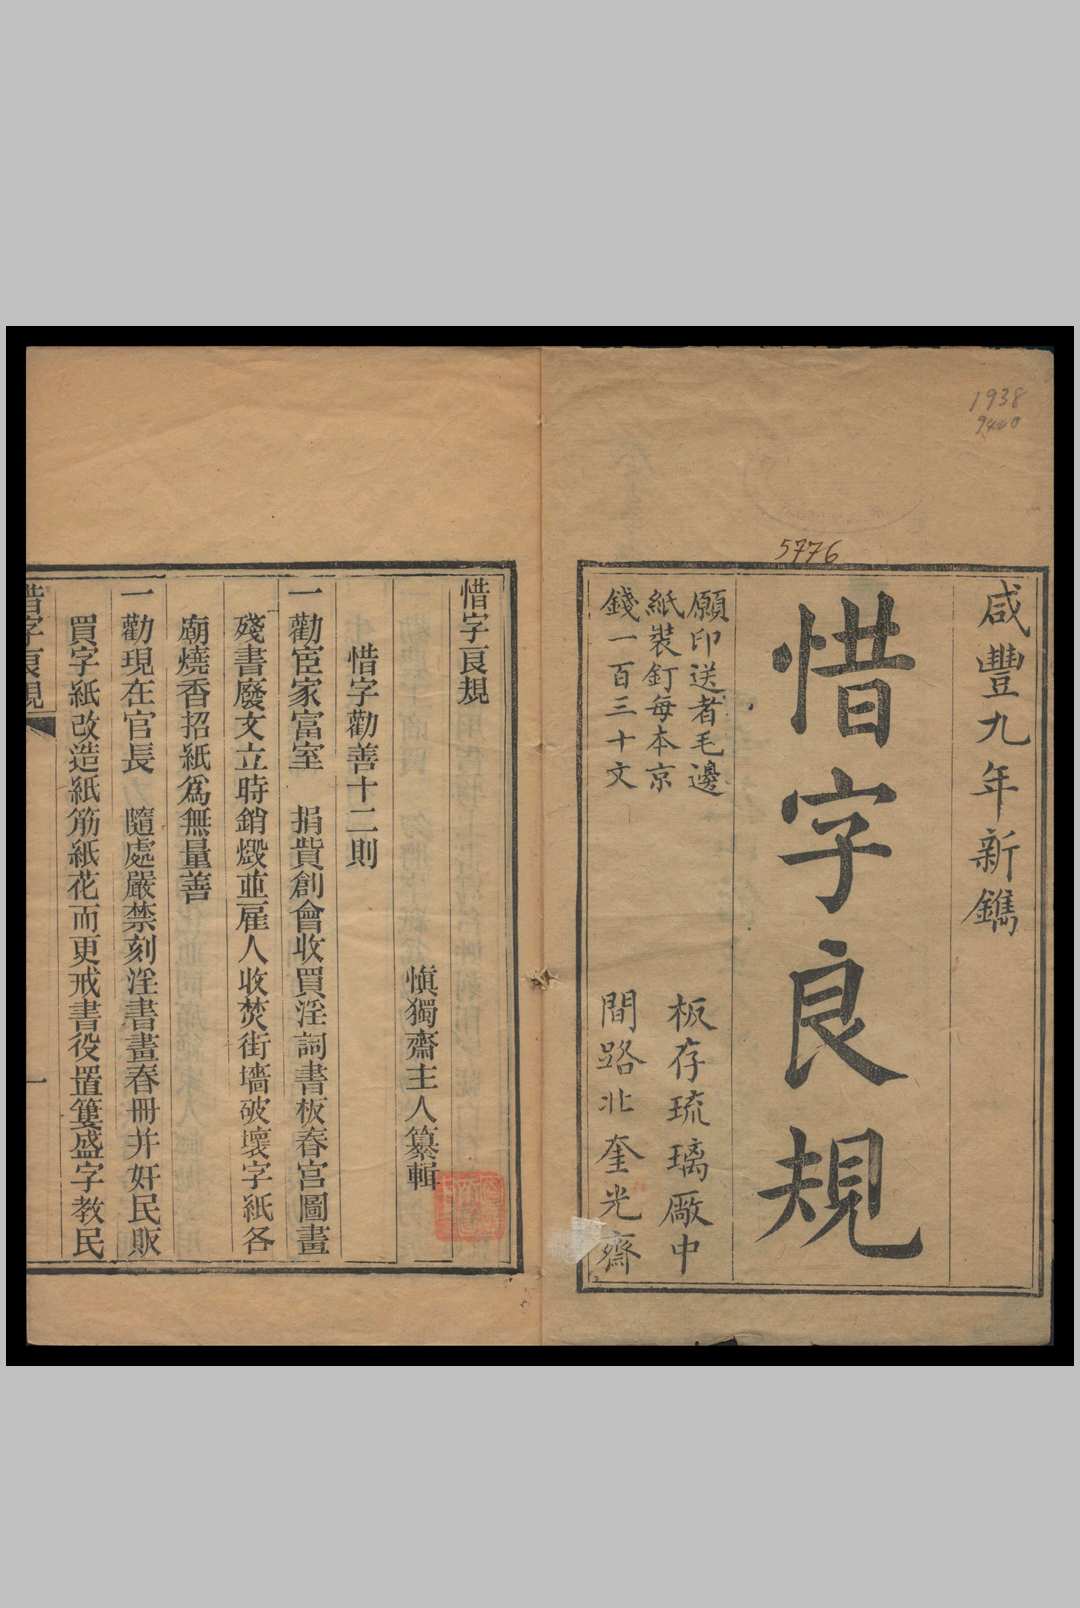 1938
9440
5776
咸豐九年新鐫
惜字良規
願印送者毛邊
紙裝釘每本京
錢一百三十文
板存琉璃廠中
間路北奎光齋
惜字良規
慎獨齋主人纂輯
惜字勸善十二則
一勸宦家富室 捐貲創會收買淫詞書板春宮圖畫
殘書廢文立時銷燬並雇人收焚街墻破壞字紙各
廟燒香招紙為無量善
一勸現在官長 隨處嚴禁刻淫書畫春冊并奸民販
買字紙改造紙筋紙花而更戒書役置簍盛字教民
惜字良規
一